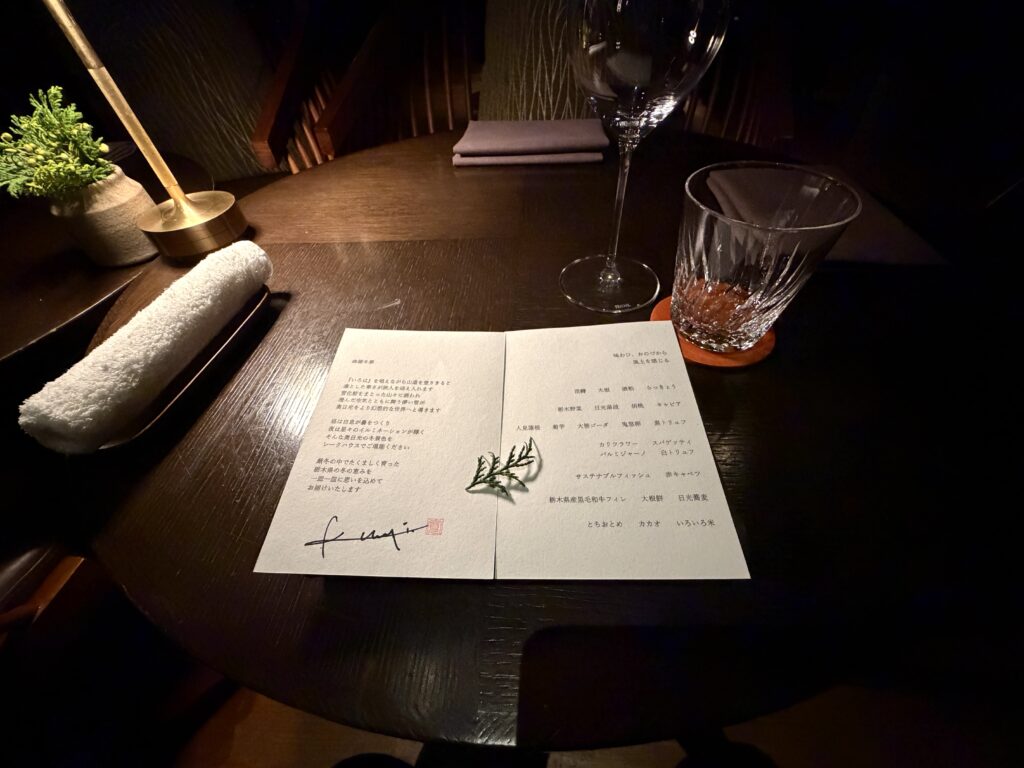 『いろは』を唱えながら山道を登りきると
凛とした寒さが旅人を迎え入れます
雪化粧をまとった山々に囲われ
澄んだ空気とともに舞う儚い雪は
奥日光をより幻想的な世界へと導きます
夜は星々のイルミネーションが輝く
そんな奥日光の冬景色を
レークハウスでご堪能ください
厳冬の中でたくましく育った
栃木県の冬の恵みを
一皿一皿に思いを込めて
お届けいたします
味わひ、おのづから
風土を感じる
大根 酒粕 らっきょう
栃木野菜 日光湯波 胡桃 キャビア
人見蓮根 菊芋 大笹ゴーダ 鬼怒卵 黒トリュフ
カリフラワー スパゲッティ
パルミジャーノ 白トリュフ
サステナブルフィッシュ 赤キャベツ
栃木県産黒毛和牛フィレ 大根餅 日光蕎麦
とちおとめ カカオ いろいろ米